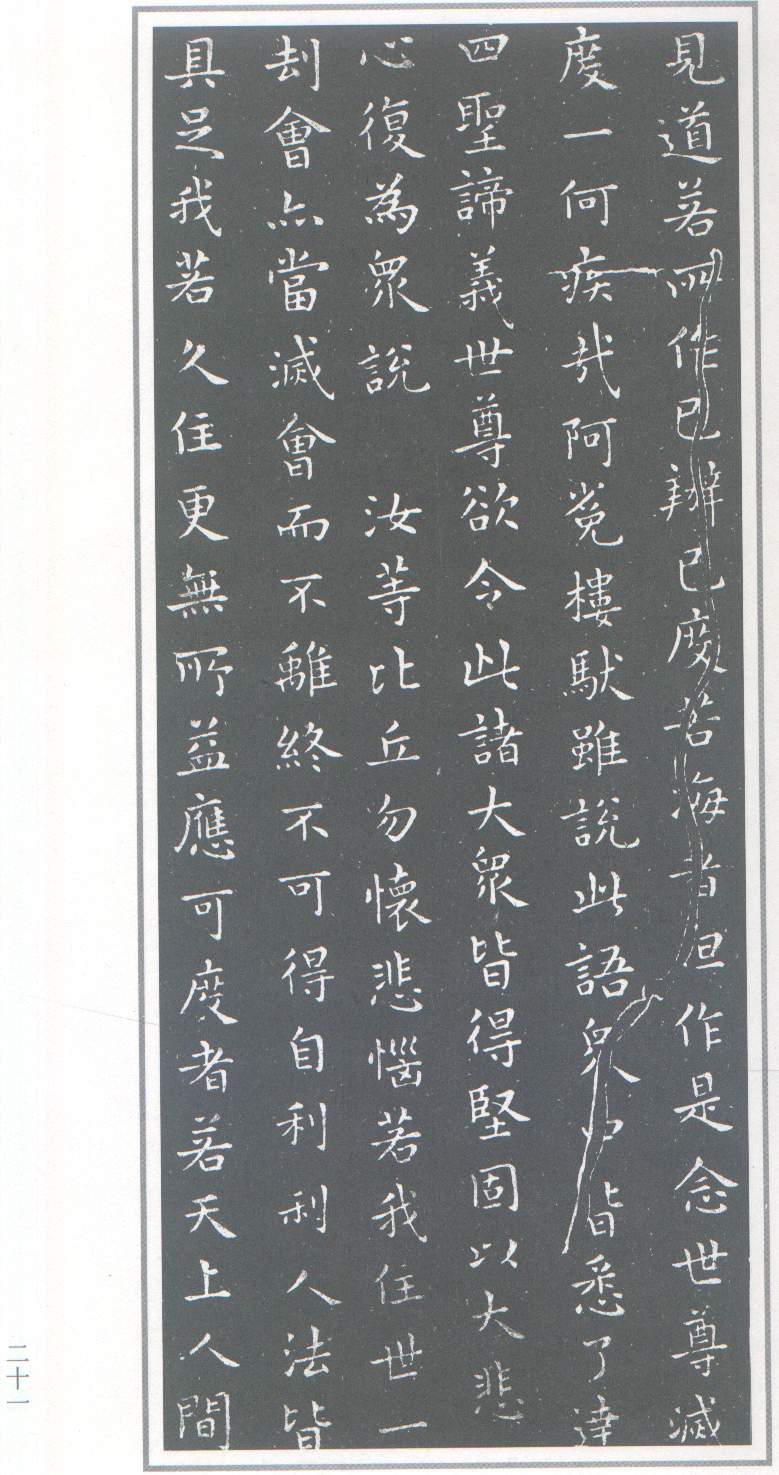 見道若所作已辦已度苦海者但作是念世尊滅
度一何疾哉阿㝹樓馱雖說此語眾中皆悉了達
四聖諦義世尊欲令此諸大眾皆得堅固以大悲
心復為眾說 汝等比丘勿懷悲惱若我住世一
刦會亦當滅會而不離終不可得自利利人法皆
具足我若久住更無所益應可度者若天上人間
二十一